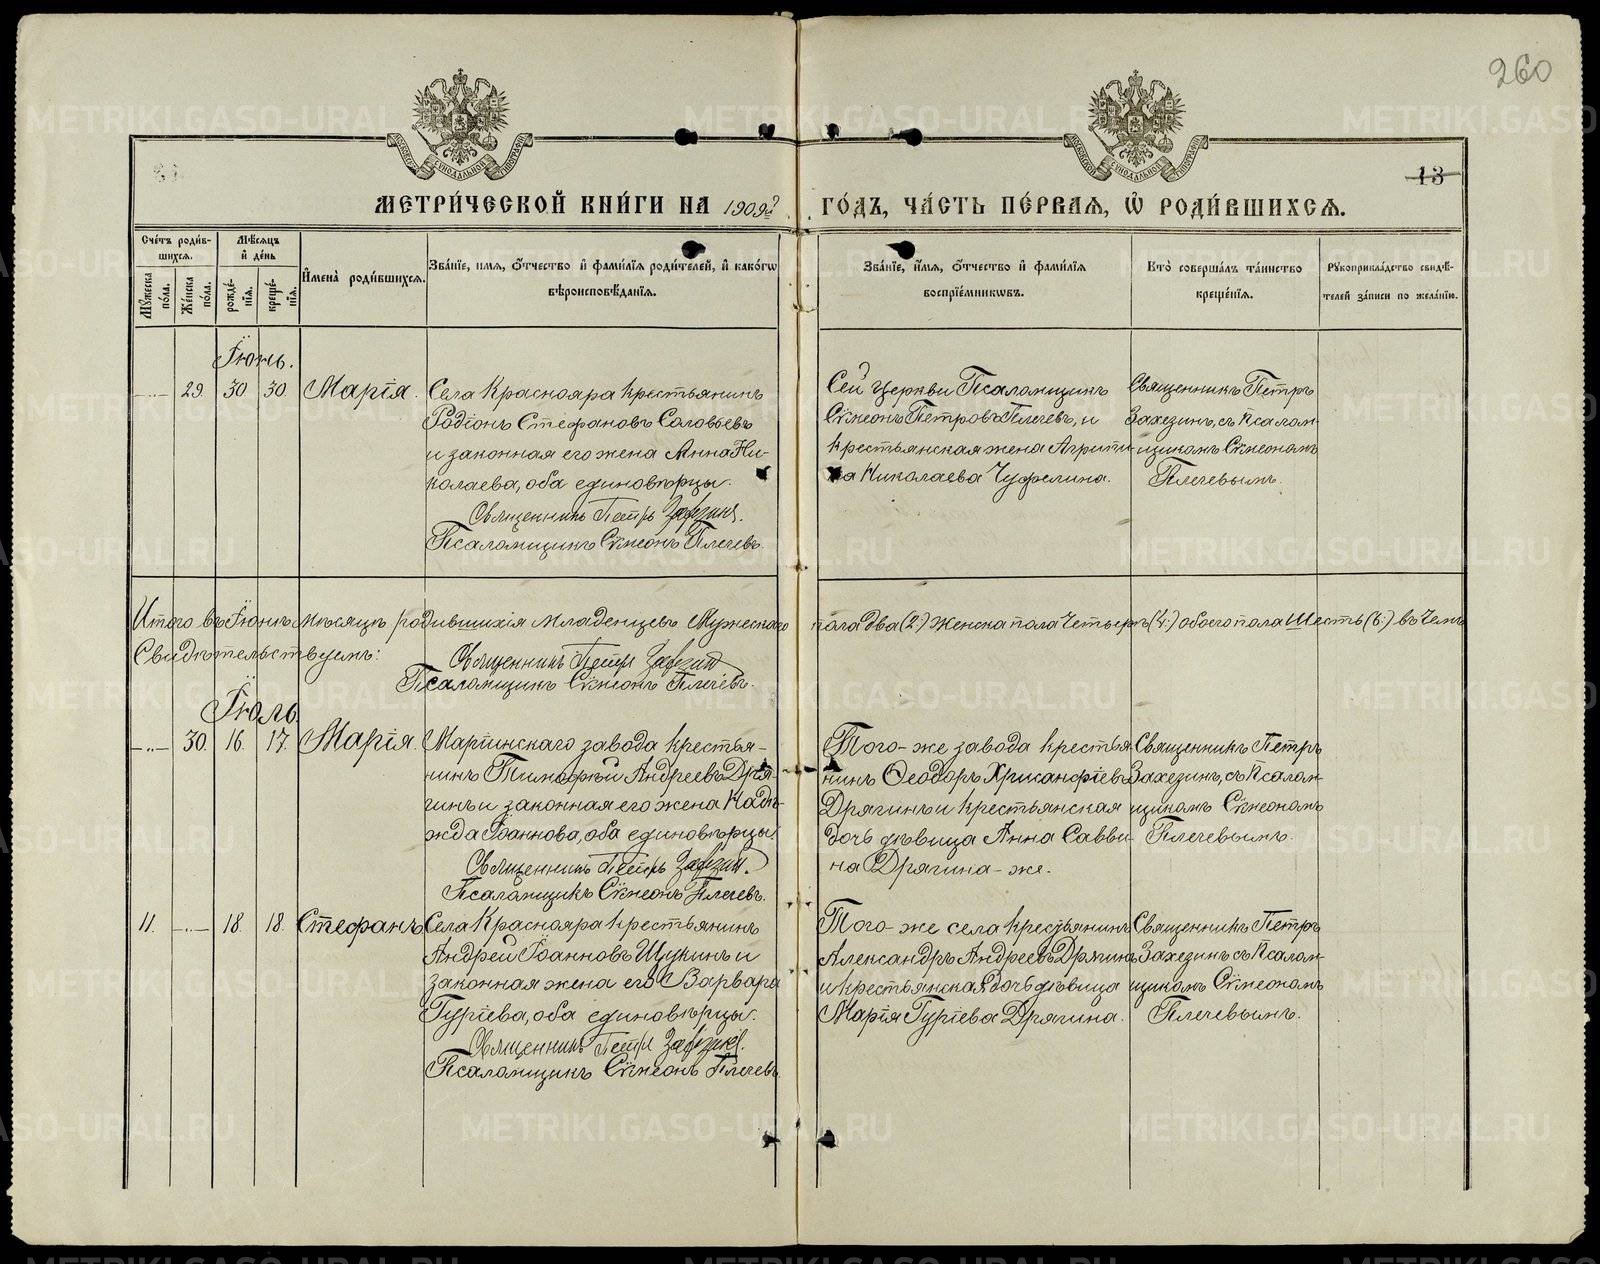 260
13
МЕТРИ́ЧЕСКОЙ КНИ́ГИ НА 1909й ГО́ДЪ, ЧА́СТЬ ПЕ́РВАЯ, Ѽ РОДИ́ВШИХСѦ.
Счетъ родив-
шихся.
Мѣсяцъ
и день
Мꙋжеска пола.
Женска пола.
рожде-
нія.
креще-
нія.
Имена родившихся.
Званіе, имя, отчество и фамилія родителей, и какогѡ
вѣроисповѣданія.
Званіе, имя, отчество и фамилія
воспріемникѡвъ.
Кто совершалъ таинство
крещенія.
Рꙋкоприкладство свидѣ-
телей записи по желанію.
Іюнь.
29. 30 30. Марія.
Села Краснояра крестьянинъ
Родіонъ Стефановъ Соловьевъ
и законная его жена Анна Ни-
колаева, оба единовѣрцы.
Священникъ Петръ Захезинъ.
Псаломщикъ Сѵмеонъ Плечевъ.
Сей церкви Псаломщикъ
Сѵмеонъ Петровъ Плечевъ, и
крестьянская жена Агрипи-
на Николаева Чуфелина.
Священникъ Петръ
Захезинъ, съ Псалом-
щикомъ Сѵмеономъ
Плечевымъ.
Итого въ Іюнѣ мѣсяцѣ родившихся младенцевъ мужескаго пола два (2) женска пола четыре (4:) обоего пола шесть (6:) въ чемъ
Свидѣтельствуемъ:
Священникъ Петръ Захезинъ
Псаломщикъ Сѵмеонъ Плечевъ.
Іюль.
30. 16. 17. Марія.
Маріинскаго завода крестья-
нинъ Тимофей Андреевъ Дря-
гинъ и законная его жена Надѣ-
жда Іоаннова, оба единовѣрцы.
Священникъ Петръ Захезинъ.
Псаломщикъ Сѵмеонъ Плечевъ.
Того-же завода крестья-
нинъ Ѳеодоръ Хрисанфіевъ
Дрягинъ и крестьянская
дочь дѣвица Анна Савви-
на Дрягина-же.
Священникъ Петръ
Захезинъ, съ Псалом-
щикомъ Сѵмеономъ
Плечевымъ.
11. 18. 18. Стефанъ
Села Краснояра крестьянинъ
Андрей Іоанновъ Щукинъ и
законная жена его Варвара
Гуріева, оба единовѣрцы.
Священникъ Петръ Захезинъ.
Псаломщикъ Сѵмеонъ Плечевъ.
Того-же села крестьянинъ
Александръ Андреевъ Дрягинъ
и крестьянская дочь дѣвица
Марія Гуріева Дрягина.
Священникъ Петръ
Захезинъ съ Псалом-
щикомъ Сѵмеономъ
Плечевымъ.
METRIKI.GASO-URAL.RU